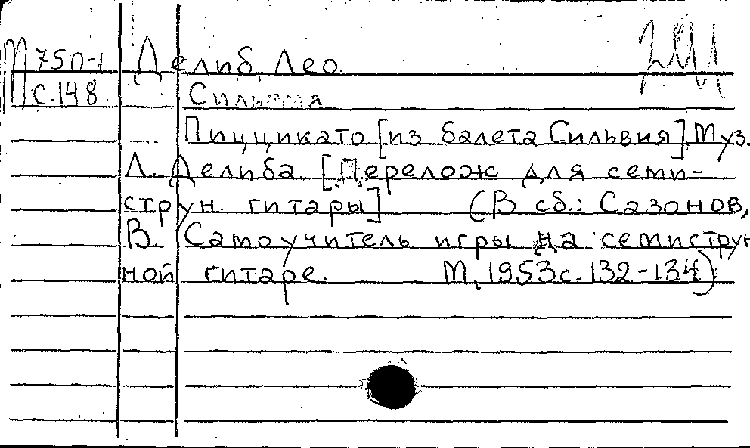 М75п-1 Делиб, Лео.
с.148 Сильвия
Пиццикато [из балета Сильвия]. Муз.
Л. Делиба. [Перелож для семи-
струн гитары] (В сб.: Сазонов,
В. Самоучитель игры на семиструн
ной гитаре. М, 1953 с. 132-134)